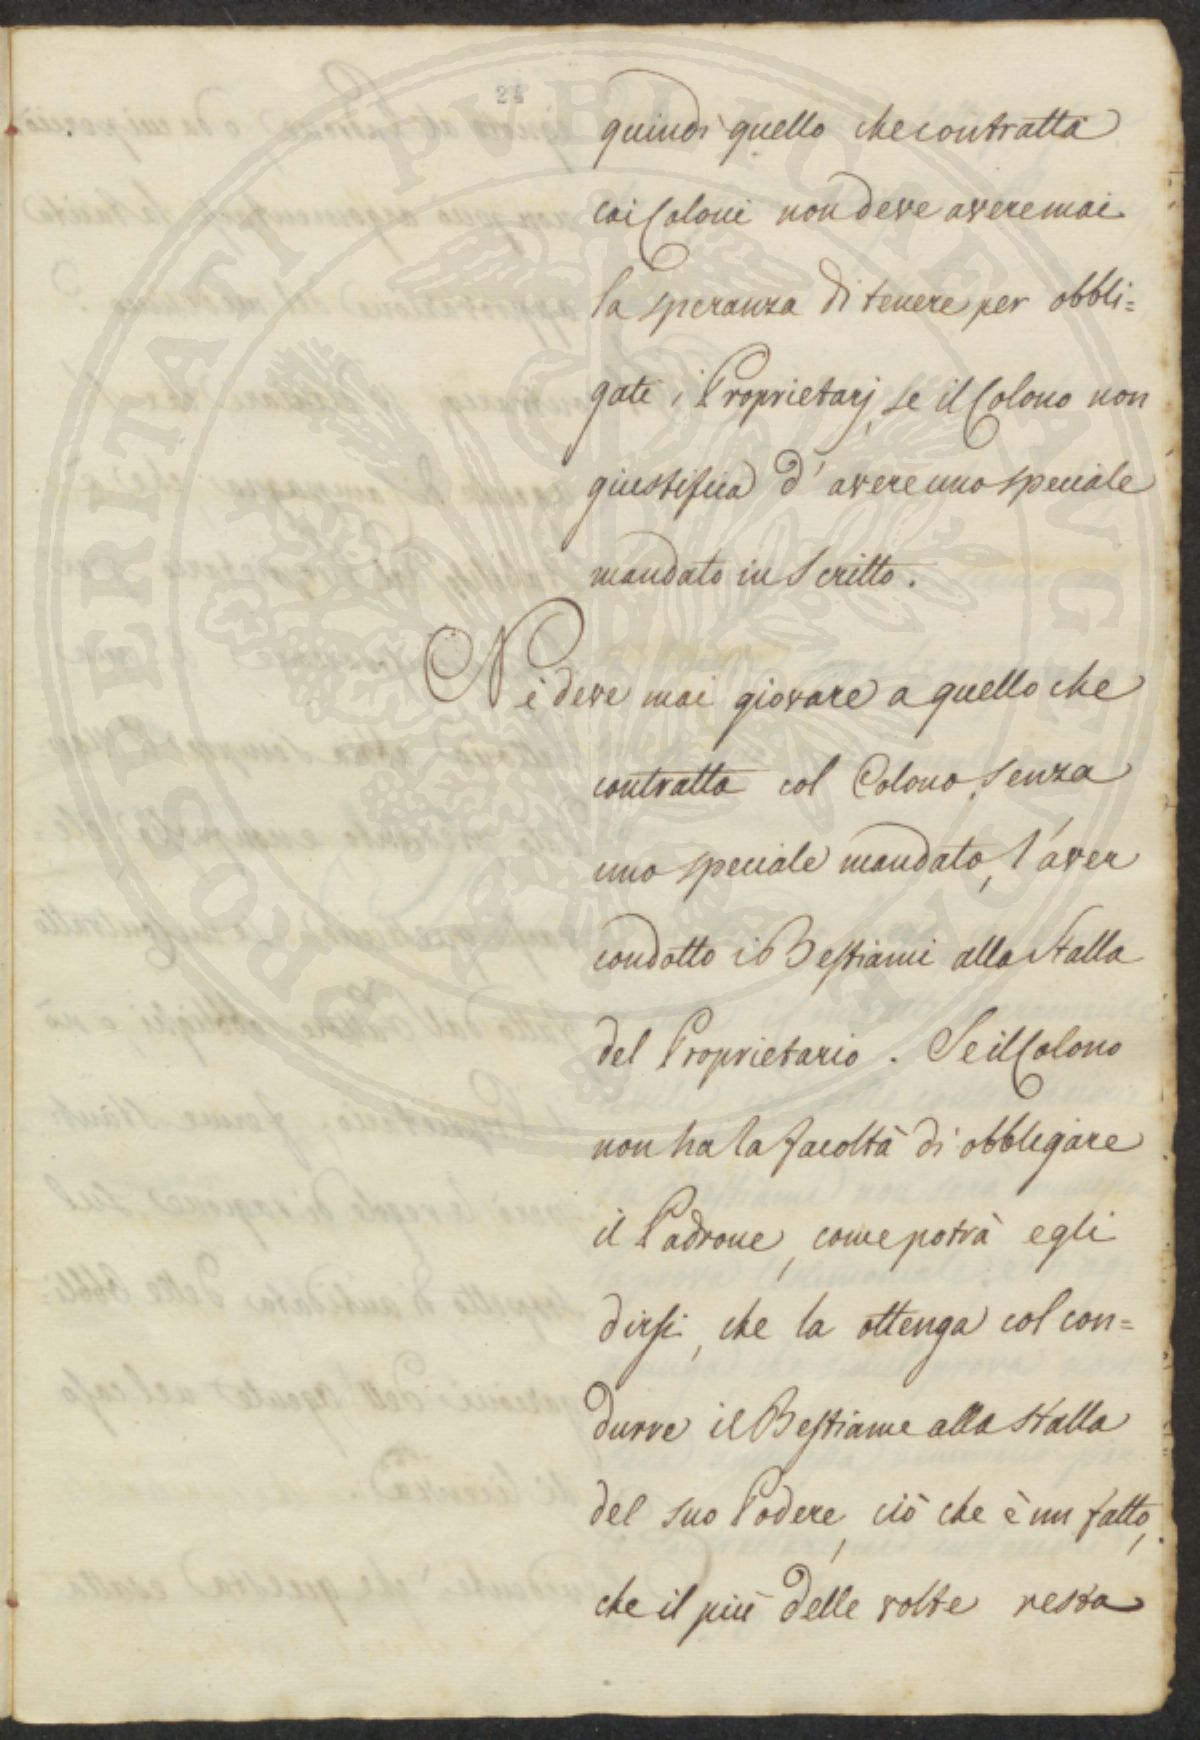 24
quindi quello che contratta
coi Coloni non deve avere mai
la speranza di tenere per obbli=
gati i Proprietarj, se il Colono non
giustifica d'avere uno speciale
mandato in Scritto.
Nè deve mai giovare a quello che
contratta col Colono senza
uno speciale mandato, l'aver
condotto i Bestiami alla Stalla
del Proprietario. Se il Colono
non ha la facoltà di obbligare
il Padrone, come potrà egli
dirsi, che la ottenga col con=
durre il Bestiame alla Stalla
del suo Podere, ciò che è un fatto,
che il più delle volte resta
PROSPERITATI PVBLICAE AVGENDAE